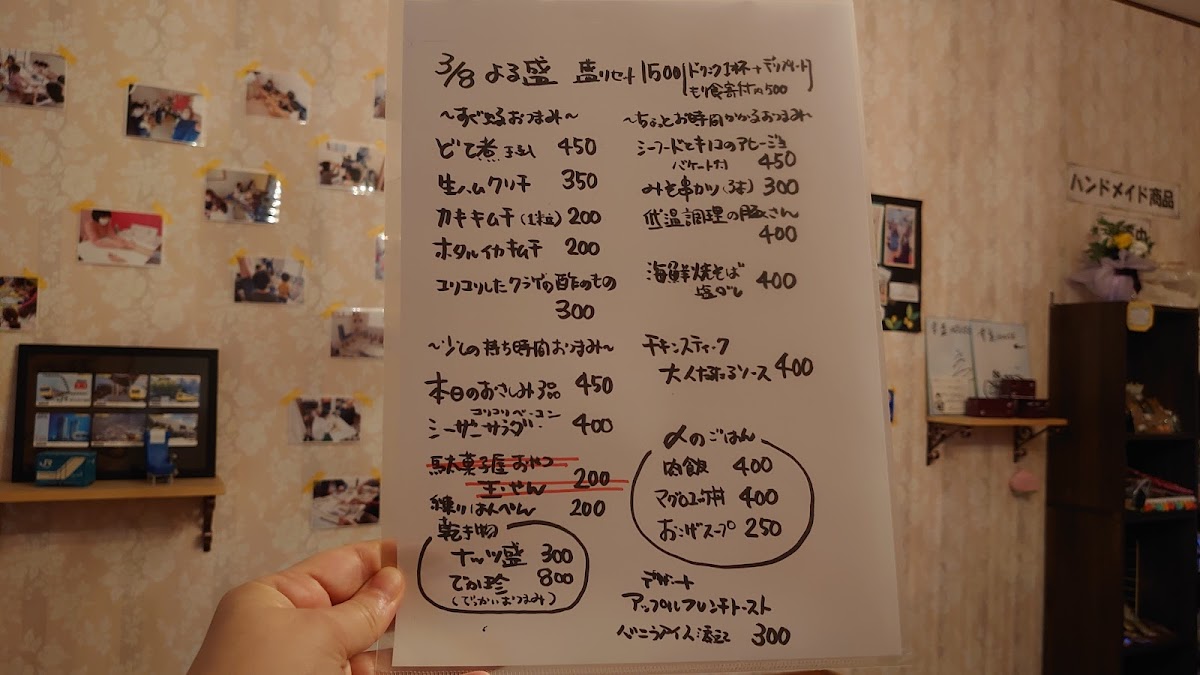 3/8 よる盛 盛りセット 1500 ドリンク1杯+デリプレート
もり食寄付内500
~すぐ出るおつまみ~
どて煮 玉こん 450
生ハムクリチ 350
カキキムチ(1粒) 200
ホタルイカキムチ 200
コリコリしたクラゲの酢のもの
300
~少しの待ち時間おつまみ~
本日のおさしみ3品 450
コリコリベーコン
シーザーサラダ 400
駄菓子屋おやつ
玉せん 200
練りはんぺん 200
乾き物
ナッツ盛 300
でか珍 800
(でっかいおつまみ)
~ちょっとお時間かかるおつまみ
シーフードとキノコのアヒージョ
バケット付 450
みそ串カツ(3本) 300
低温調理の豚さん
400
海鮮焼そば
塩ダレ 400
チキンスティック
大人なソース 400
〆のごはん
肉飯 400
マグロユッケ丼 400
おこげスープ 250
デザート
アップルフレンチトースト
アイス添え 300
ハンドメイド商品